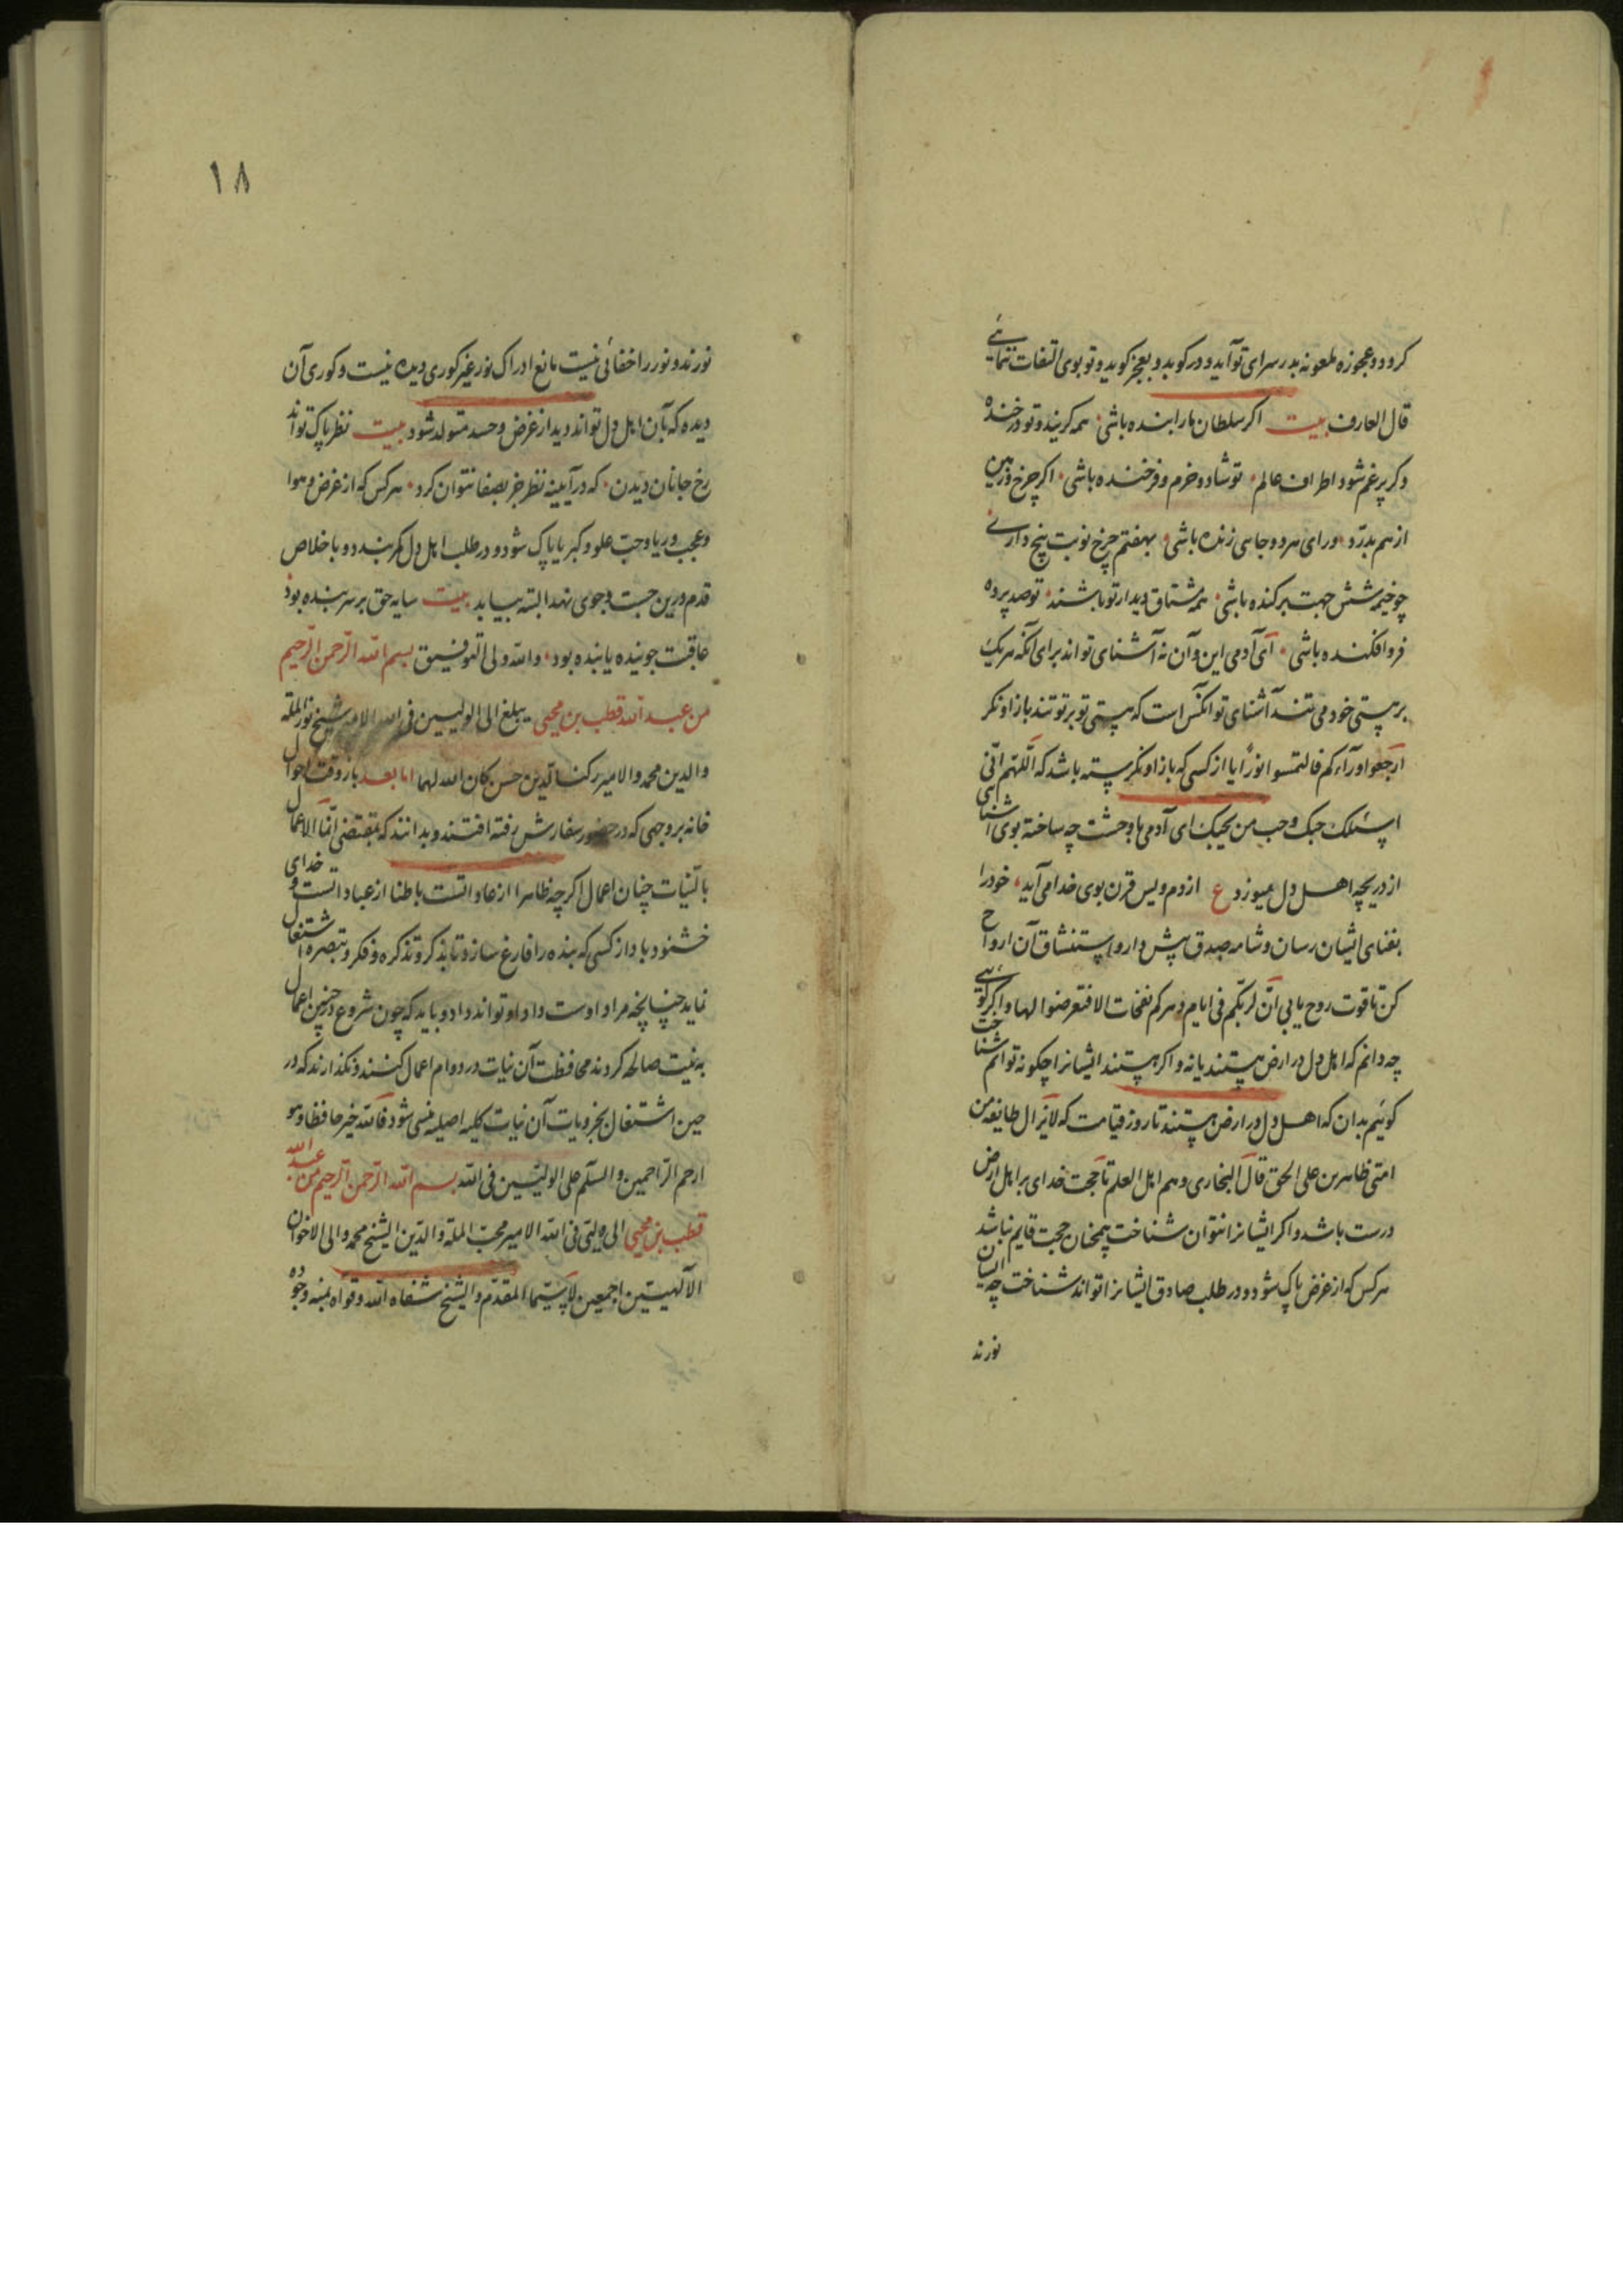 کردد و عجوزه ملعونه بدر سرای تو آید و در کوبد و بعجز کوید و تو بوی التفات ننمایی
قال العارف بیت اکر سلطان ما را بنده باشی همه کریند و تو در خنده
وکر پر غم شود اطراف عالم تو شاد و خرم و فرخنده باشی اکر چرخ و زمین
از هم بدرّد ورای هر دو جایی زنده باشی بهفتم چرخ نوبت پنج داری
چو خیمه شش جهت برکنده باشی همه مشتاق دیدار تو باشند تو صد پرده
فرو افکنده باشی ای آدمی این و آن نه آشنای تو اند برای آنکه هر یک
بر هستی خود می تنند آشنای تو آنکس است که هستی تو بر تو تند باز او نکر
ارجعوا ورآءکم فالتمسوا نورًا یا از کسی که باز او نکرسته باشد که اللّهمّ انّی
اسئلک حبک و حب من یحبک ای آدمی با وحشت چه ساخته بوی آشنایی
از دریچه اهل دل میوزد ع از دم ویس قرن بوی خدا می آید خود را
بفنای ایشان رسان و شامه صدق پیش دار و استنشاق آن ارواح
کن تا قوت روح یابی انّ لربّکم فی ایام دهرکم نفحات الا فتعرضوا لها و اکر کویی
چه دانم که اهل دل در ارض هستند یا نه و اکر هستند ایشانرا چکونه توانم شناخت
کوئیم بدان که اهل دل در ارض هستند تا روز قیامت که لایزال طایفه من
امتی ظاهرین علی الحق قال البخاری و هم اهل العلم تا حجت خدای بر اهل ارض
درست باشد و اکر ایشانرا نتوان شناخت همچنان حجت قایم نباشد
هر کس که از غرض پاک شود و در طلب صادق ایشانرا تواند شناخت چه ایشان
نورند
۱۸
نورند و نور را خفائی نیست مانع ادراک نور غیر کوری دیده نیست و کوری آن
دیده که بآن اهل دل تواند دید از غرض و حسد متولد شود بیت نظر پاک تواند
رخ جانان دیدن که در آیینه نظر جز بصفا نتوان کرد هر کس که از غرض و هوا
و عجب و ریا و حبّ علو و کبر یا پاک شود و در طلب اهل دل کمر بندد و باخلاص
قدم درین جست و جوی نهد البته بیابد بیت سایه حق بر سر بنده بود
عاقبت جوینده یابنده بود والله ولی التوفیق بسم الله الرّحمن الرّحیم
من عبد الله قطب بن محیی یبلغ الی الولیین فی الله الامیر شیخ نور الملة
والدین محمد والامیر رکن الدین حسن کان الله لهما اما بعد باز وقت احوال
خانه بر وجهی که در حضور سفارش رفته افتند و بدانند که بمقتضی انّما الاعمال
بالنّیات چنان اعمال اکر چه ظاهرا از عاداتست باطنا از عباداتست و خدای
خشنود باد از کسی که بنده را فارغ سازد تا بذکر و تذکره و فکر و تبصره اشتغال
نماید چنانچه مراد اوست و داد او تواند داد و باید که چون شروع در چنین اعمال
به نیت صالحه کردند محافظت آن نیات در دوام اعمال کنند و نکذارند که در
حین اشتغال بجزویات آن نیات کلیه اصلیه منسی شود فالله خیر حافظا و هو
ارحم الرّاحمین والسّلم علی الولیّین فی الله بسم الله الرّحمن الرّحیم من عبد الله
قطب بن محیی الی ولیّی فی الله الامیر محبّ الملة والدّین الشیخ محمد والی الاخوان
الآلهیّین اجمعین لا سیّما المقدّم والشیخ شفاه الله وقوّاه بمنه وجوده